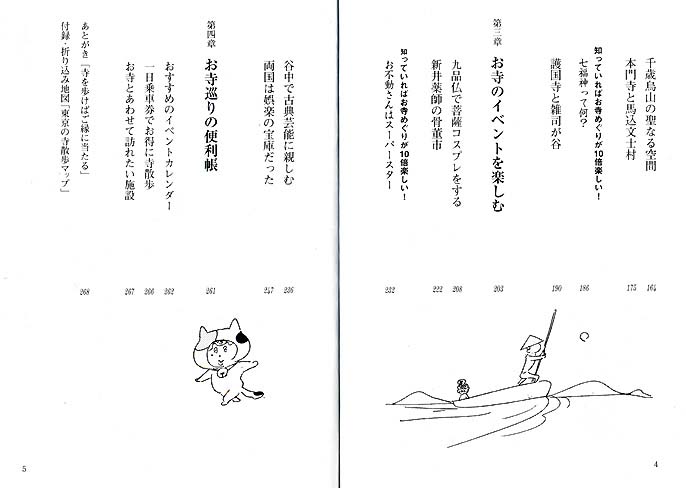 千歳烏山の聖なる空間 164
本門寺と馬込文士村 175
知っていればお寺めぐりが10倍楽しい！
七福神って何？ 186
護国寺と雑司が谷 190
第三章 お寺のイベントを楽しむ 203
九品仏で菩薩コスプレをする 208
新井薬師の骨董市 222
知っていればお寺めぐりが10倍楽しい！
お不動さんはスーパースター 232
4
谷中で古典芸能に親しむ 236
両国は娯楽の宝庫だった 247
第四章 お寺巡りの便利帳 261
おすすめのイベントカレンダー 262
一日乗車券でお得に寺散歩 266
お寺とあわせて訪れたい施設 267
あとがき「寺を歩けばご縁に当たる」 268
付録・折り込み地図「東京の寺散歩マップ」
5